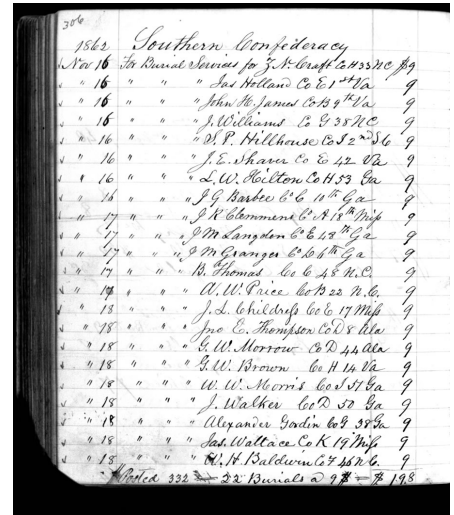 306
1862 Southern Confederacy
Nov 16 For Burial Services for Z. N. Craft Co H 33 NC $9
" 16 " " " Jas Holland Co E 1st Va 9
" 16 " " " John H. James Co B 9th Va 9
" 16 " " " J. Williams Co G 38 N C 9
" 16 " " " S. P. Hillhouse Co I 2nd S C 9
" 16 " " " J. E. Shaver Co E 42 Va 9
" 16 " " " L. W. Hilton Co H 53 Ga 9
" 16 " " " J G Barbee Co C 10th Ga 9
" 17 " " " J K Clemmens Co A 18th Miss 9
" 17 " " " J M Langdon Co E 48th Ga 9
" 17 " " " J M Granger Co 6th Ga 9
" 17 " " " B. Thomas Co C 48 N.C. 9
" 17 " " " A. W. Price Co B 22 N.C. 9
" 18 " " " J. L. Childress Co E 17 Miss 9
" 18 " " " Jno E. Thompson Co D 8 Ala 9
" 18 " " " G. W. Morrow Co D 44 Ala 9
" 18 " " " G. W. Brown Co H 14 Va 9
" 18 " " " W. W. Morris Co I 51 Ga 9
" 18 " " " J. Walker Co D 50 Ga 9
" 18 " " " Alexander Gordin Co G 38 Ga 9
" 18 " " " Jas. Wallace Co K 19 Miss 9
" 18 " " " W. H. Baldwin Co F 46 N C. 9
Posted 332 22 Burials a 9 $ = $ 198